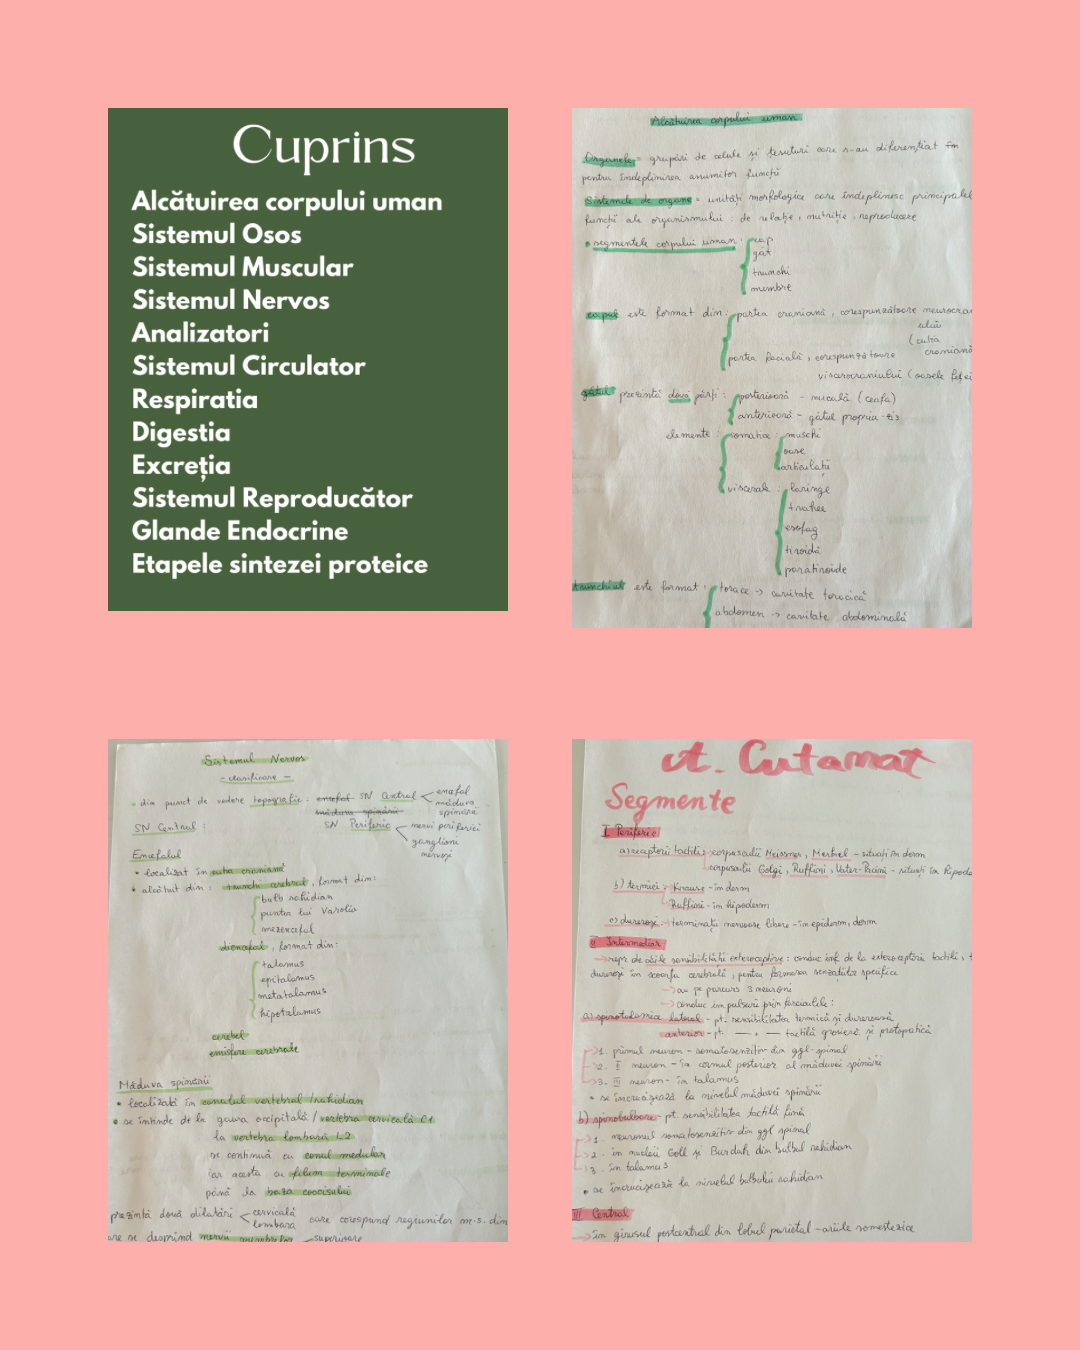 Cuprins
Alcătuirea corpului uman
Sistemul Osos
Sistemul Muscular
Sistemul Nervos
Analizatori
Sistemul Circulator
Respiratia
Digestia
Excreția
Sistemul Reproducător
Glande Endocrine
Etapele sintezei proteice
Alcătuirea corpului uman
Organele = grupări de celule și țesuturi care s-au diferențiat în
pentru îndeplinirea anumitor funcții
Sistemele de organe = unități morfologice care îndeplinesc principalele
funcții ale organismului : de relație, nutriție, reproducere
• segmentele corpului uman : cap
gât
trunchi
membre
capul este format din: partea craniană, corespunzătoare neurocra
ului
(cutia
craniană
partea facială, corespunzătoare
viscerocraniului (oasele feței
gâtul prezintă două părți : posterioară - nucală (ceafa)
anterioară - gâtul propriu-zis
elemente : somatice : mușchi
oase
articulații
viscerale : laringe
trahee
esofag
tiroidă
paratiroide
trunchiul este format : torace -> cavitate toracică
abdomen -> cavitate abdominală
Sistemul Nervos
- clasificare -
• din punct de vedere topografic : encefal SN Central encefal
măduva spinării măduva
spinării
SN Central : SN Periferic nervi periferici
ganglioni
nervoși
Encefalul
• localizat în cutia craniană
• alcătuit din : trunchi cerebral, format din:
bulb rahidian
puntea lui Varolio
mezencefal
diencefal, format din:
talamus
epitalamus
metatalamus
hipotalamus
cerebel
emisfere cerebrale
Măduva spinării
• localizată în canalul vertebral/rahidian
• se întinde de la gaura occipitală / vertebra cervicală C1
la vertebra lombară L2
se continuă cu conul medular
iar acesta cu filum terminale
până la baza coccisului
prezintă două dilatări cervicală
lombara care corespund regiunilor m.s. din
are se desprind nervii membrelor superioare
A. Cutanat
Segmente
I Periferic
a) receptorii tactili: corpusculii Meissner, Merkel - situați în derm
corpusculii Golgi, Ruffini, Vater-Pacini - situați în hipode
b) termici: Krause - în derm
Ruffini - în hipoderm
c) dureroși - terminații nervoase libere - în epiderm, derm
II Intermediar
-> repr de căile sensibilității exteroceptive : conduc inf. de la exteroceptorii tactili, t
dureroși în scoarța cerebrală, pentru formarea senzațiilor specifice
-> au pe parcurs 3 neuroni
-> conduc impulsuri prin fasciculele :
a) spinotalamic lateral - pt. sensibilitatea termică și dureroasă
anterior - pt. — " — tactilă grosieră și protopatică
1. primul neuron - somatosenzitiv din ggl. spinal
2. II neuron - în cornul posterior al măduvei spinării
3. III neuron - în talamus
• se încrucișează la nivelul măduvei spinării
b) spinobulbare - pt. sensibilitatea tactilă fină
1. neuronul somatosenzitiv din ggl spinal
2. în nucleii Goll și Burdach din bulbul rahidian
3. în talamus
• se încrucișează la nivelul bulbului rahidian
III Central
-> în girusul postcentral din lobul parietal - ariile somestezice